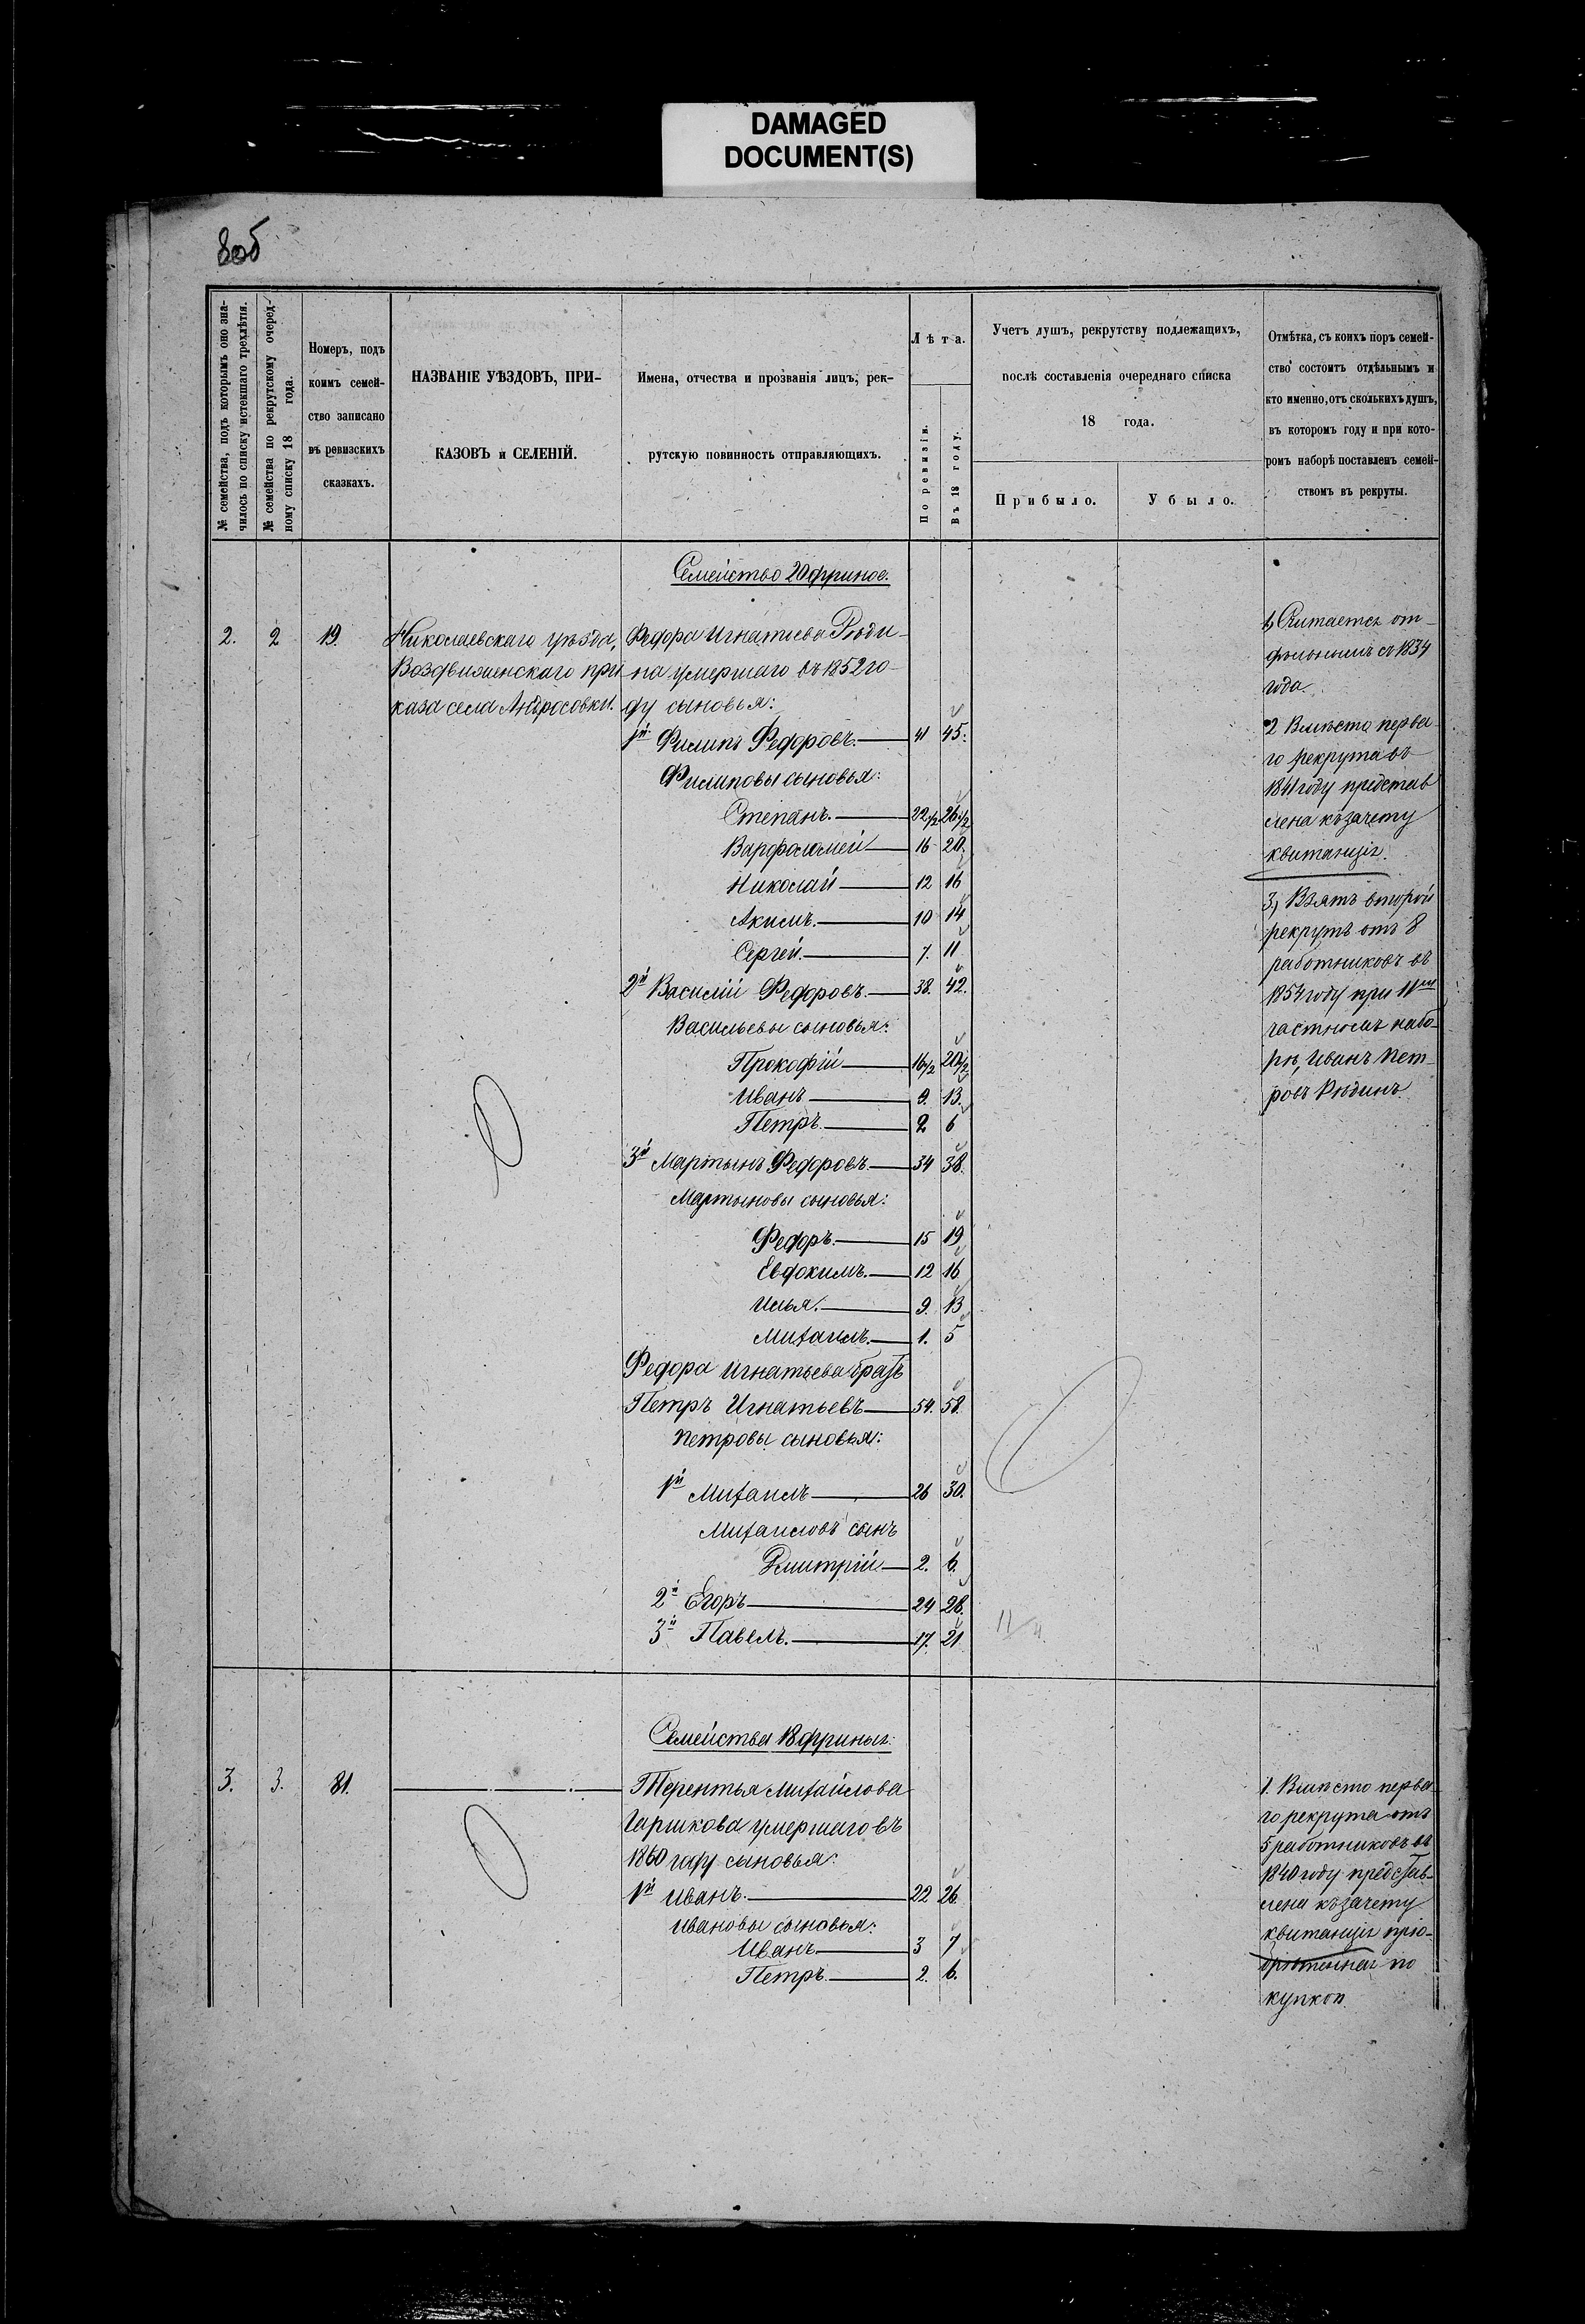 DAMAGED
DOCUMENT(S)
№ семейства, подъ которымъ оно зна-
чилось по списку истекшаго трехлѣтія.
№ семейства по рекрутскому очеред-
ному списку 18 года.
Номеръ, подъ
коимъ семей-
ство записано
въ ревизскихъ
сказкахъ.
НАЗВАНІЕ УѢЗДОВЪ, ПРИ-
КАЗОВЪ и СЕЛЕНІЙ.
Имена, отчества и прозванія лицъ, рек-
рутскую повинность отправляющихъ.
Лѣта.
По ревизіи.
Въ 18 году.
Учетъ душъ, рекрутству подлежащихъ,
послѣ составленія очереднаго списка
18 года.
Прибыло.
Убыло.
Отмѣтка, съ коихъ поръ семей-
ство состоитъ отдѣльнымъ и
кто именно, отъ сколькихъ душъ,
въ которомъ году и при кото-
ромъ наборѣ поставленъ семей-
ствомъ въ рекруты.
Семейство 20 душное.
2. 2 19.
Николаевскаго уѣзда,
Воздвиженскаго при
каза села Андросовки.
Федора Игнатьева Рѣди-
на умершаго въ 1852 го-
ду сыновья:
1й Филипъ Федоровъ. 41 45.
Филиповы сыновья:
Степанъ. 22 1/2 26 1/2
Варфоломей 16 20.
Николай 12 16
Акимъ. 10 14
Сергей. 7. 11
2й Василій Федоровъ. 38. 42.
Васильевы сыновья:
Прокофій 16 1/2 20 1/2
Иванъ 9. 13.
Петръ. 2 6
3й Мартынъ Федоровъ. 34 38.
Мартыновы сыновья:
Федоръ. 15 19
Евдокимъ. 12 16
Илья. 9. 13
Михаилъ. 1. 5
Федора Игнатьева братъ
Петръ Игнатьевъ 54. 58.
Петровы сыновья:
1й Михаилъ 26 30.
Михаиловъ сынъ
Дмитрій 2. 6.
2й Егоръ 24 28.
3й Павелъ. 17. 21
1, Считается от-
дѣльнымъ съ 1834
года.
2 Вмѣсто перва
го рекрута въ
1841 году представ
лена къ зачету
квитанція.
3, Взятъ второй
рекрутъ отъ 8
работниковъ въ
1854 году при 11мъ
частномъ набо-
рѣ, Иванъ Пет-
ровъ Рѣдинъ.
Семейства 18 душныя:
3. 3. 81.
Терентья Михайлова
умершаго въ
1860 году сыновья:
1й Иванъ. 22 26.
Ивановы сыновья:
Иванъ 3 7
Петръ. 2. 6.
1. Вмѣсто перва-
го рекрута отъ
5 работниковъ въ
1840 году представ-
лена къ зачету
квитанція прiо-
брѣтенная по
купкою.